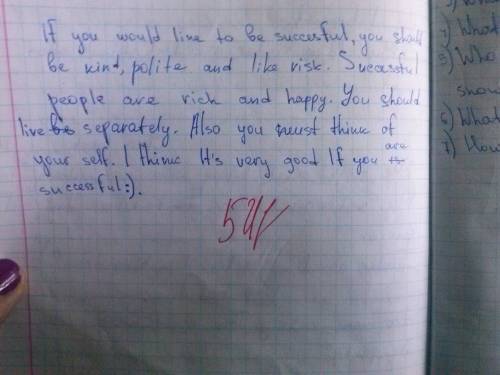 If you would like to be succesful, you should
be kind, polite and like risk. Successful
people are rich and happy. You should
live separately. Also you must think of
your self. I think It's very good If you are
successful:).
What
Who
What
How